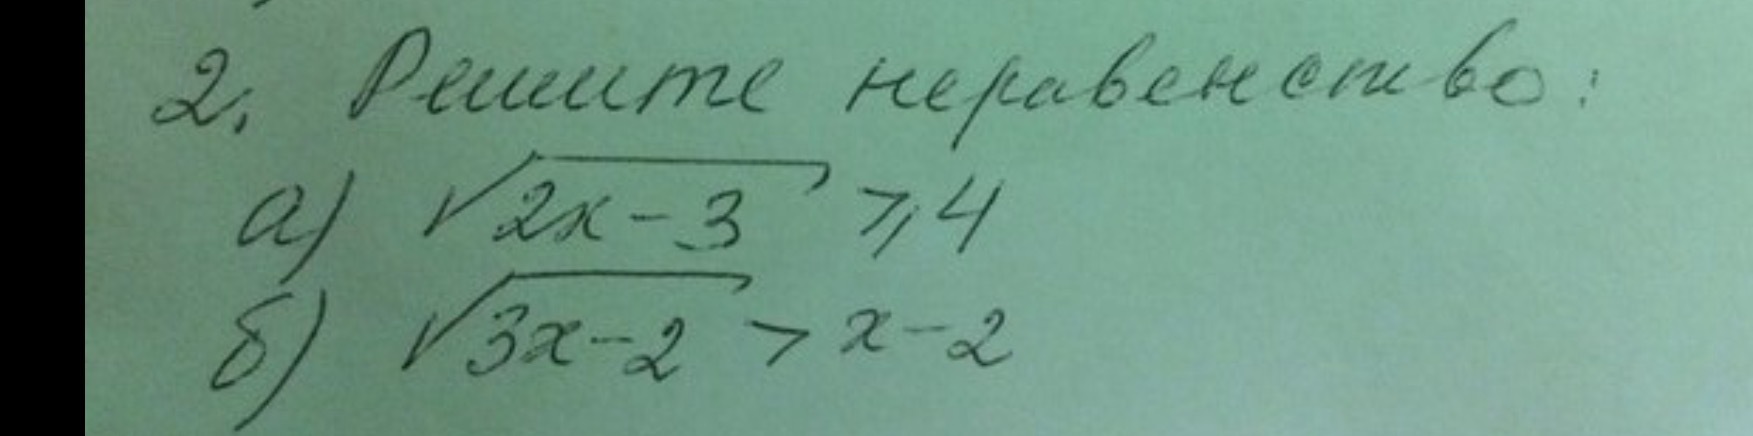 2. Решите неравенство:
а) √(2x-3) ≥ 4
б) √(3x-2) > x-2